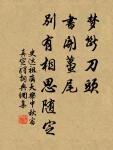 梦断刀头
书开虿尾
别有相思随定
史达祖齐天乐中秋宿
真定驿词典网集